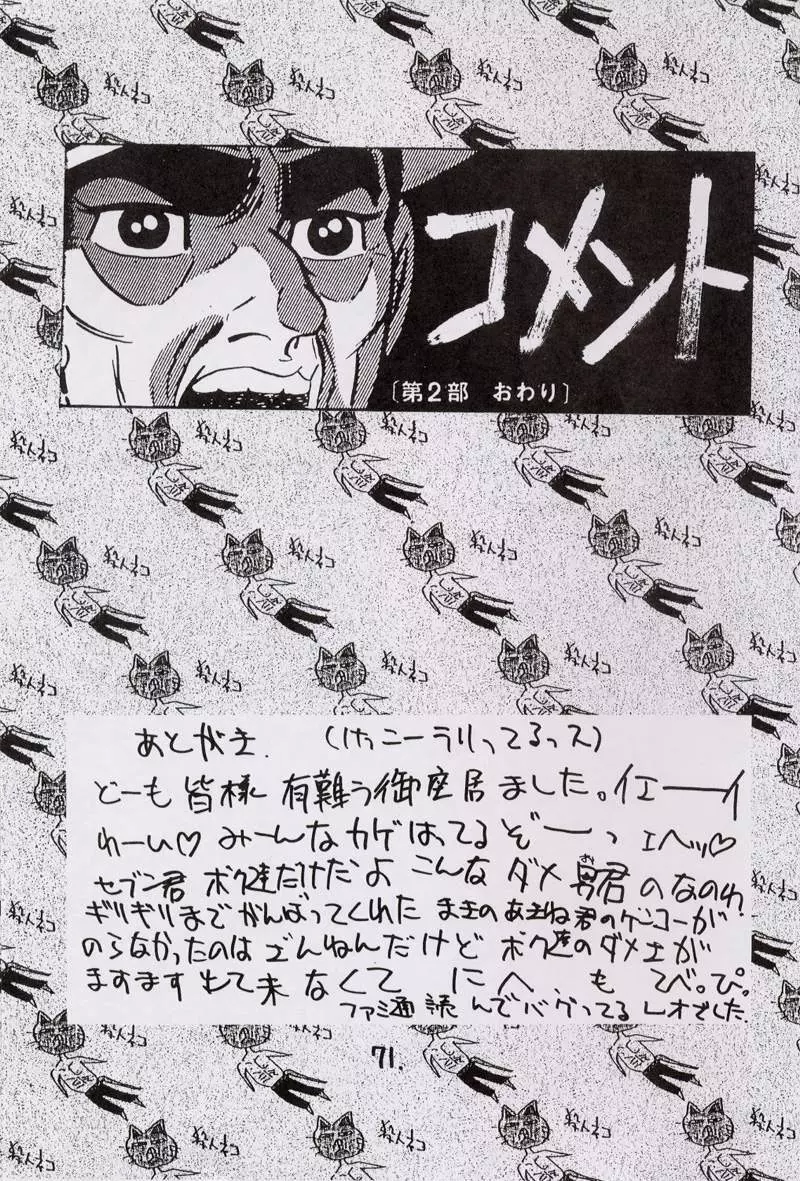 コメント
〔第2部 おわり〕
殺人ネコ
あとがき. (けっこーラリってるっス)
どーも皆様 有難う御座居ました。イエーイ
わーい♡ みーんなカゲはってるぞーっ エヘッ♡
セブン君 ボク達だけだよ こんな ダメ男君のなのわ
ギリギリまでがんばってくれた まきのあきね君のゲンコーが
のらなかったのは ざんねんだけど ボク達のダメェが
ますます 出て来なくて にへ、も てべ。ぴ。
ファミ通 読んでバグってる レオでした.
71.